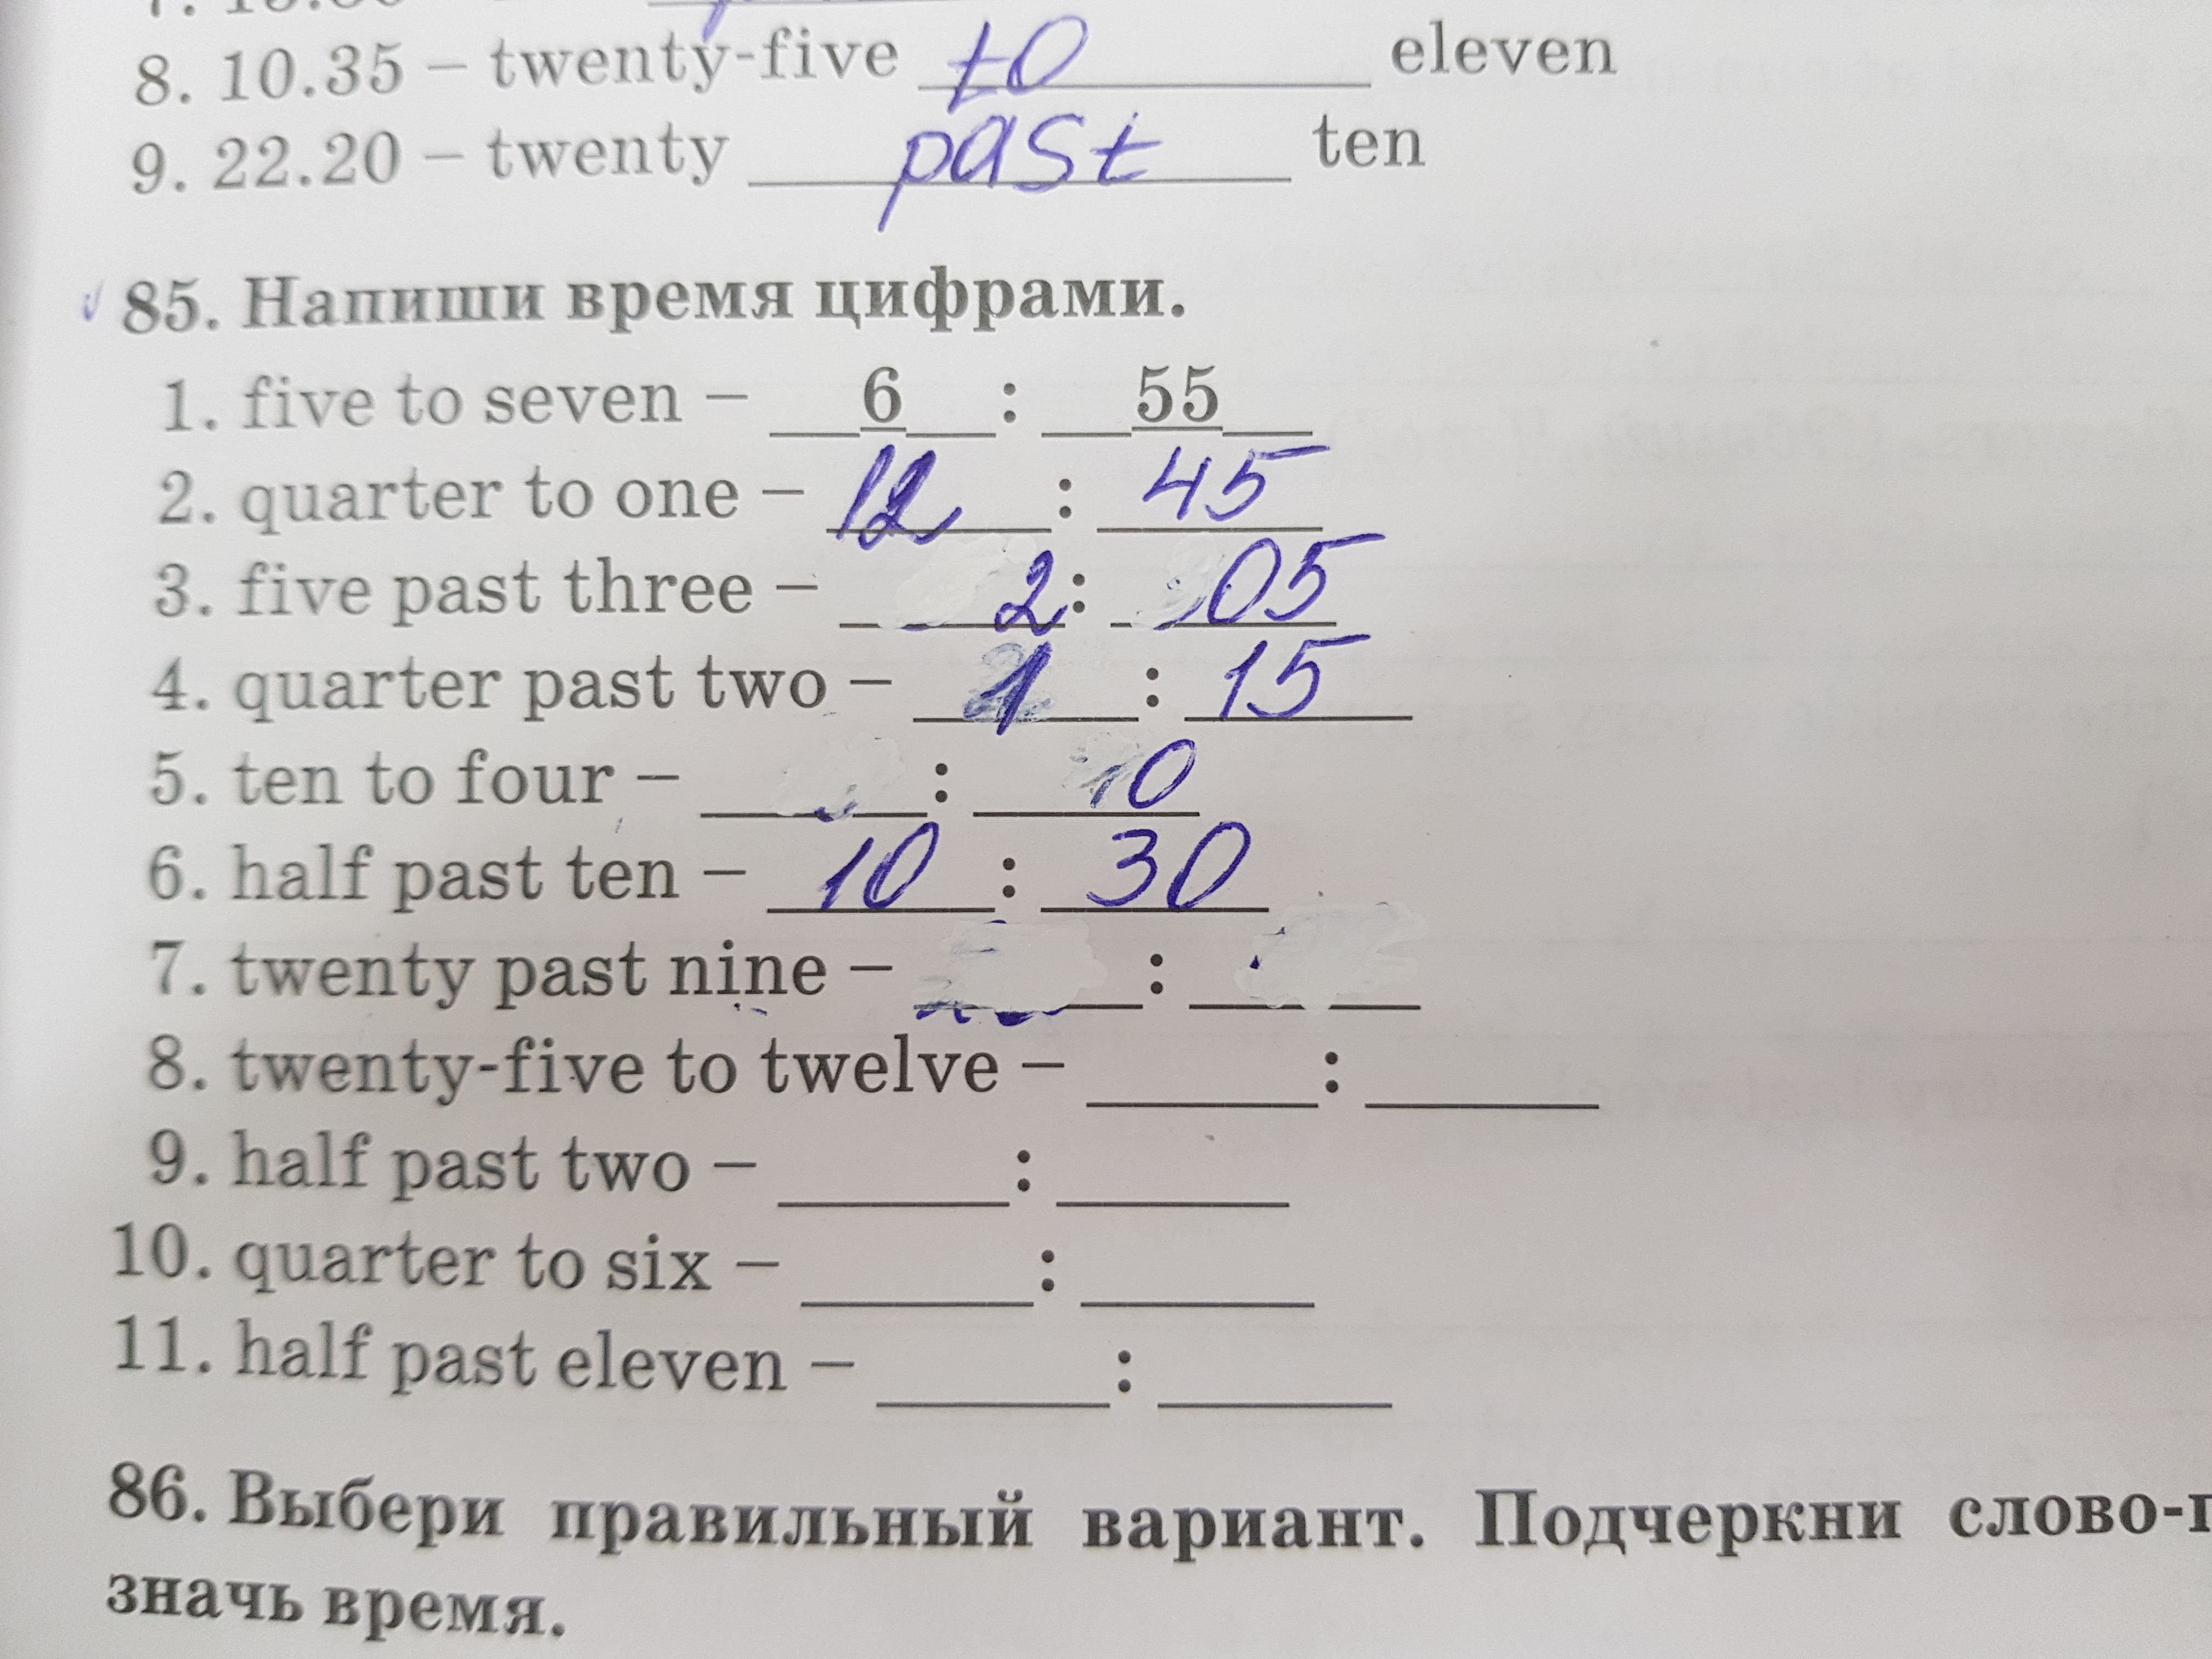 8. 10.35 – twenty-five to eleven
9. 22.20 – twenty past ten
85. Напиши время цифрами.
1. five to seven – 6 : 55
2. quarter to one – 12 : 45
3. five past three – 2 : 05
4. quarter past two – 1 : 15
5. ten to four – : 10
6. half past ten – 10 : 30
7. twenty past nine – :
8. twenty-five to twelve – :
9. half past two – :
10. quarter to six – :
11. half past eleven – :
86. Выбери правильный вариант. Подчеркни слово-п
значь время.